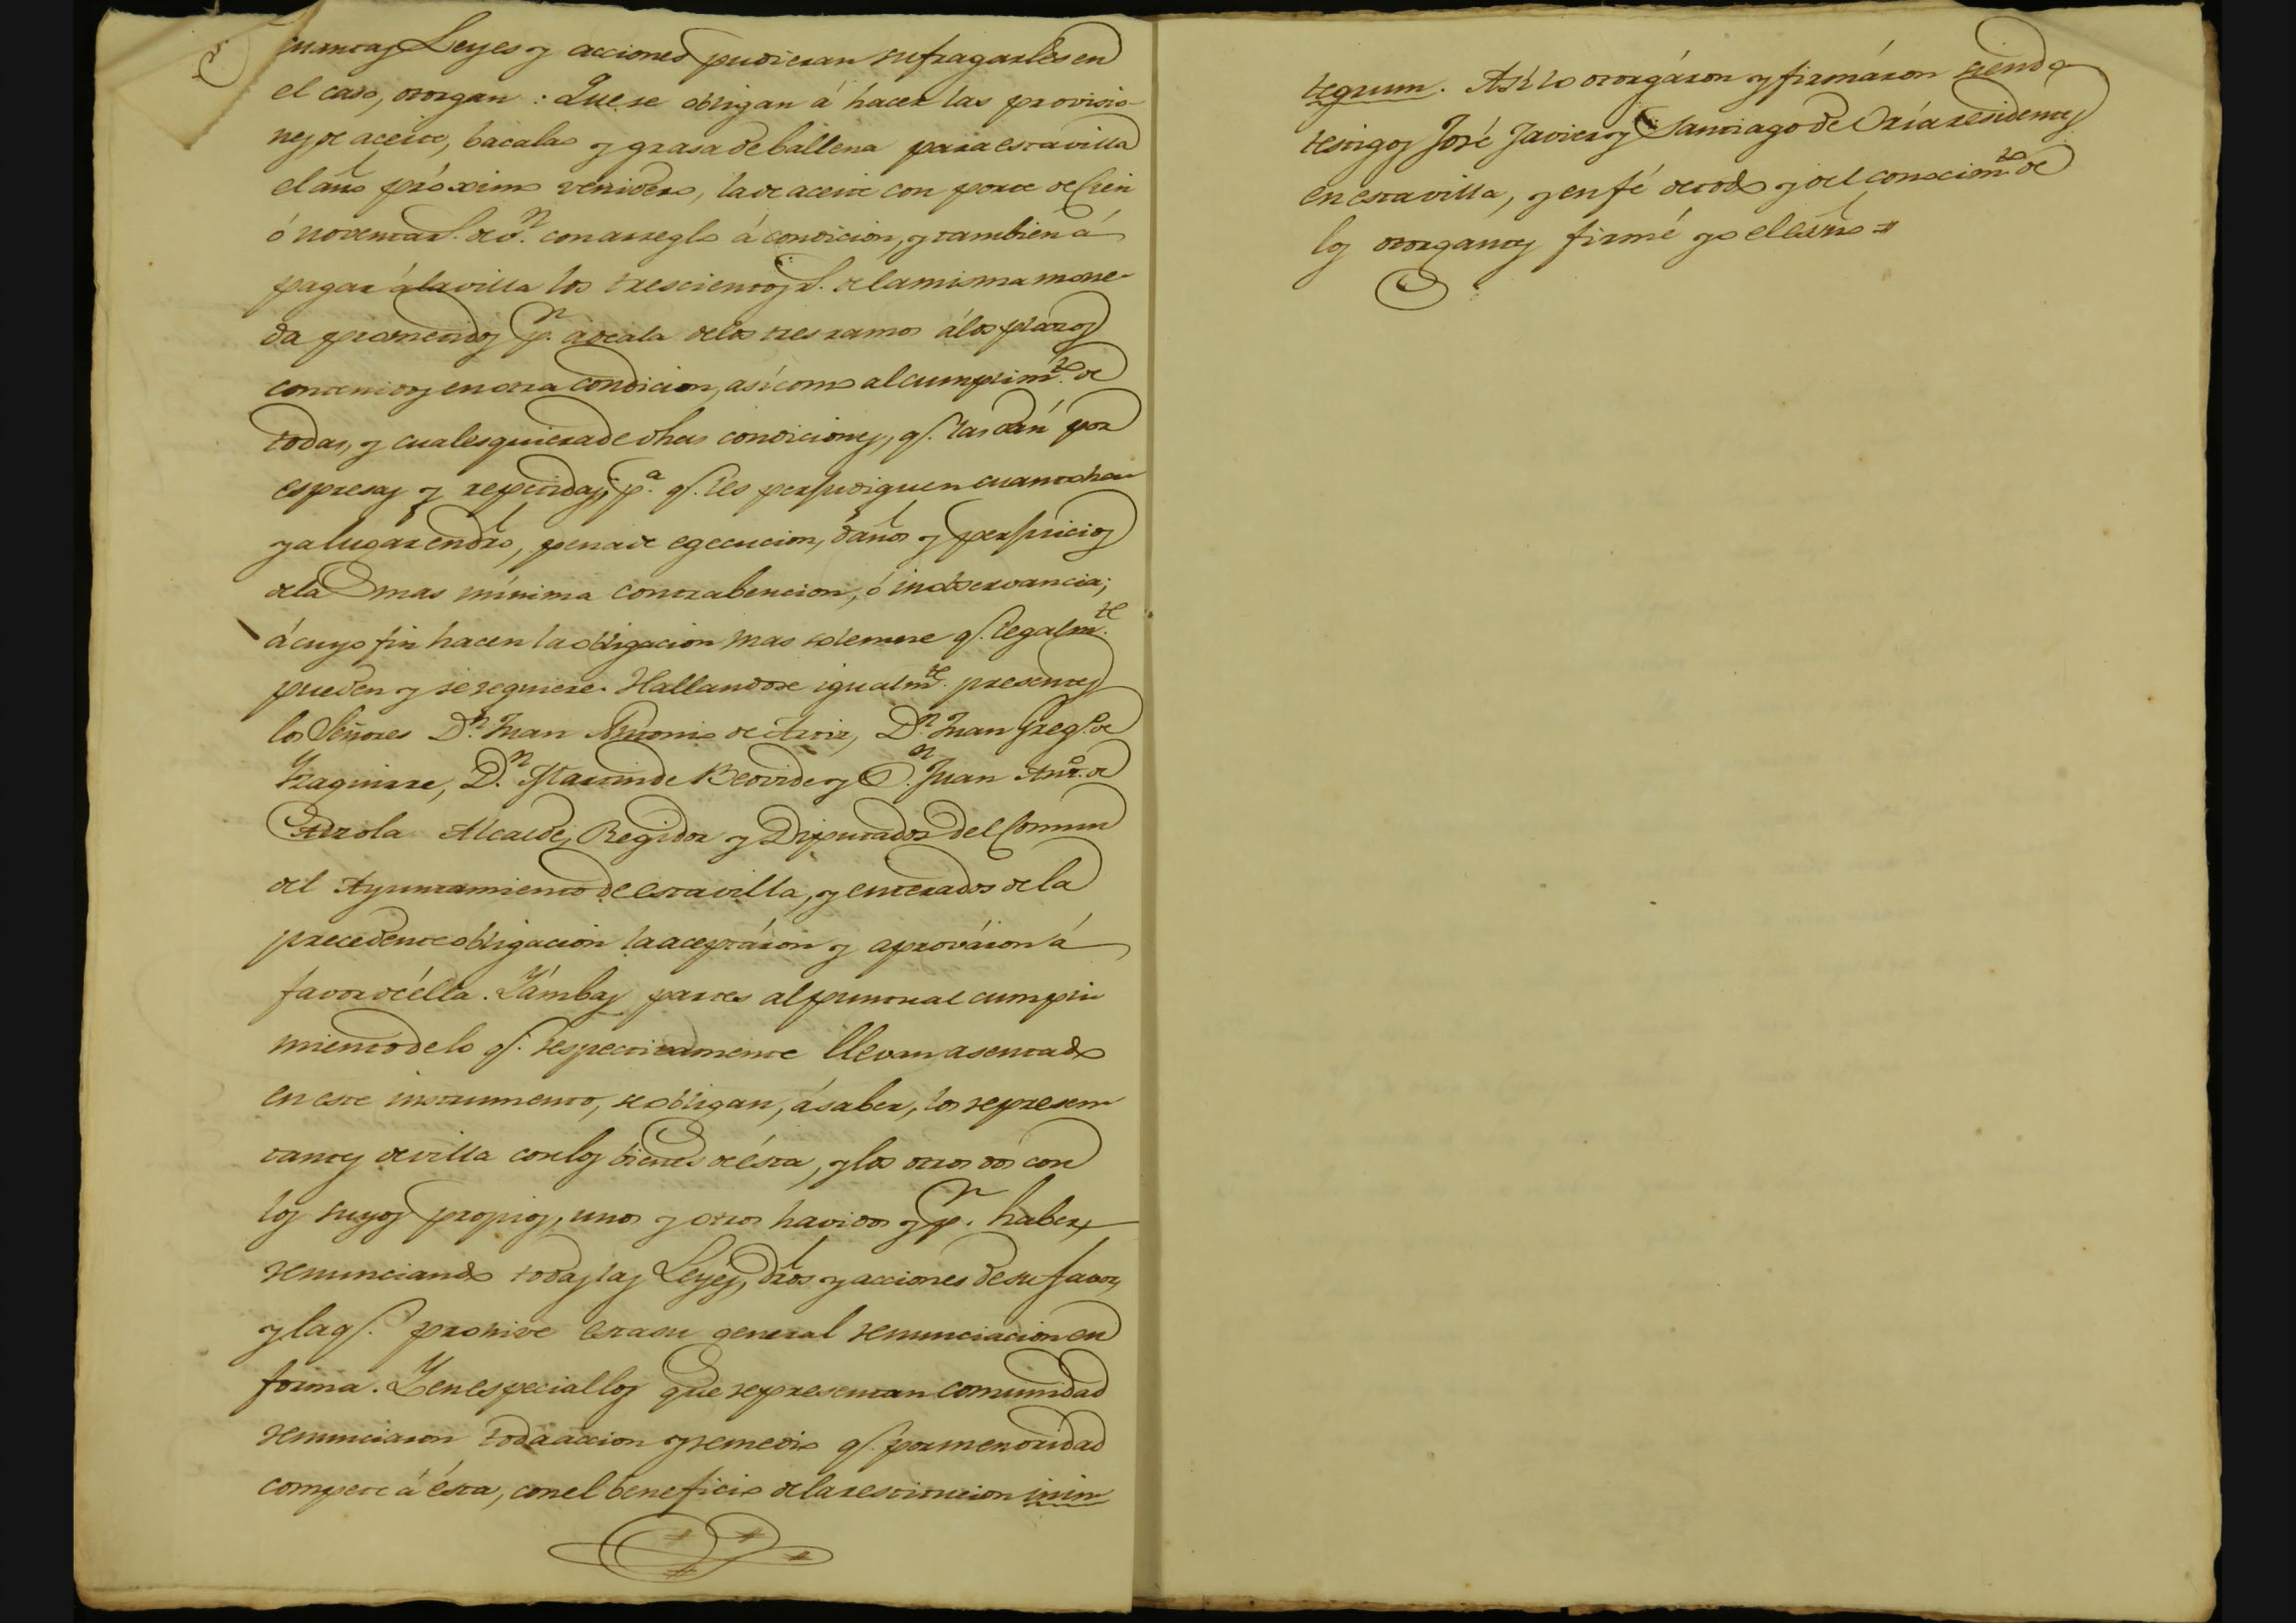 cuantas Leyes y acciones pudieran sufragarles en
el caso, otorgan: Que se obligan á hacer las provisio-
nes de aceite, bacalao y grasa de ballena para esta villa
el año próximo venidero, la de aceite con porte de Cien
ó noventa r.s de v.n con arreglo á condicion, y tambien á
pagar á la villa los trescientos r.s de la misma mone-
da prometidos p.r adeala de los tres ramos á los plazos
contenidos en otra condicion, así como al cumplim.to de
todas, y cualesquiera de dhas condiciones, q.e las dán por
espresas y repetidas, p.a q.e les perjudiquen cuanto ha-
ya lugar en dro, pena de egecucion, daños y perjuicios
de la mas mínima contrabencion, ó inobservancia;
á cuyo fin hacen la obligacion mas solemne q.e legalm.te
pueden y se requiere. Hallandose igualm.te presentes
los Señores D.n Juan Antonio de D.n Juan Greg.o de
Yzaguirre, D.n Martin de Beovide y D.n Juan Ant.o de
Alcalde, Regidor y Diputados del Comun
del Ayuntamiento de esta villa, y enterados de la
precedente obligacion la aceptáron y aprováron á
favor de élla. Y ámbas partes al puntual cumpli
miento de lo q.e respectivamente llevan asentado
en este instrumento, se obligan, á saber, los represen-
tantes de villa con los bienes de ésta, y los otros dos con
los suyos propios, unos y otros havidos y p.r haber,
renunciando todas las Leyes, dros y acciones de su favor,
y la q.e prohive esta su general renunciacion en
forma. Y en especial los que representan comunidad
renunciaron toda accion y remedio q.e por menoridad
compete á ésta, con el beneficio de la restitucion inin-
tegrum. Así lo otorgáron y firmáron siendo
testigos José Javier y Santiago de Oría residentes
en esta villa, y en fé de todo y del conocim.to de
los otorgantes firmé yo el esno =